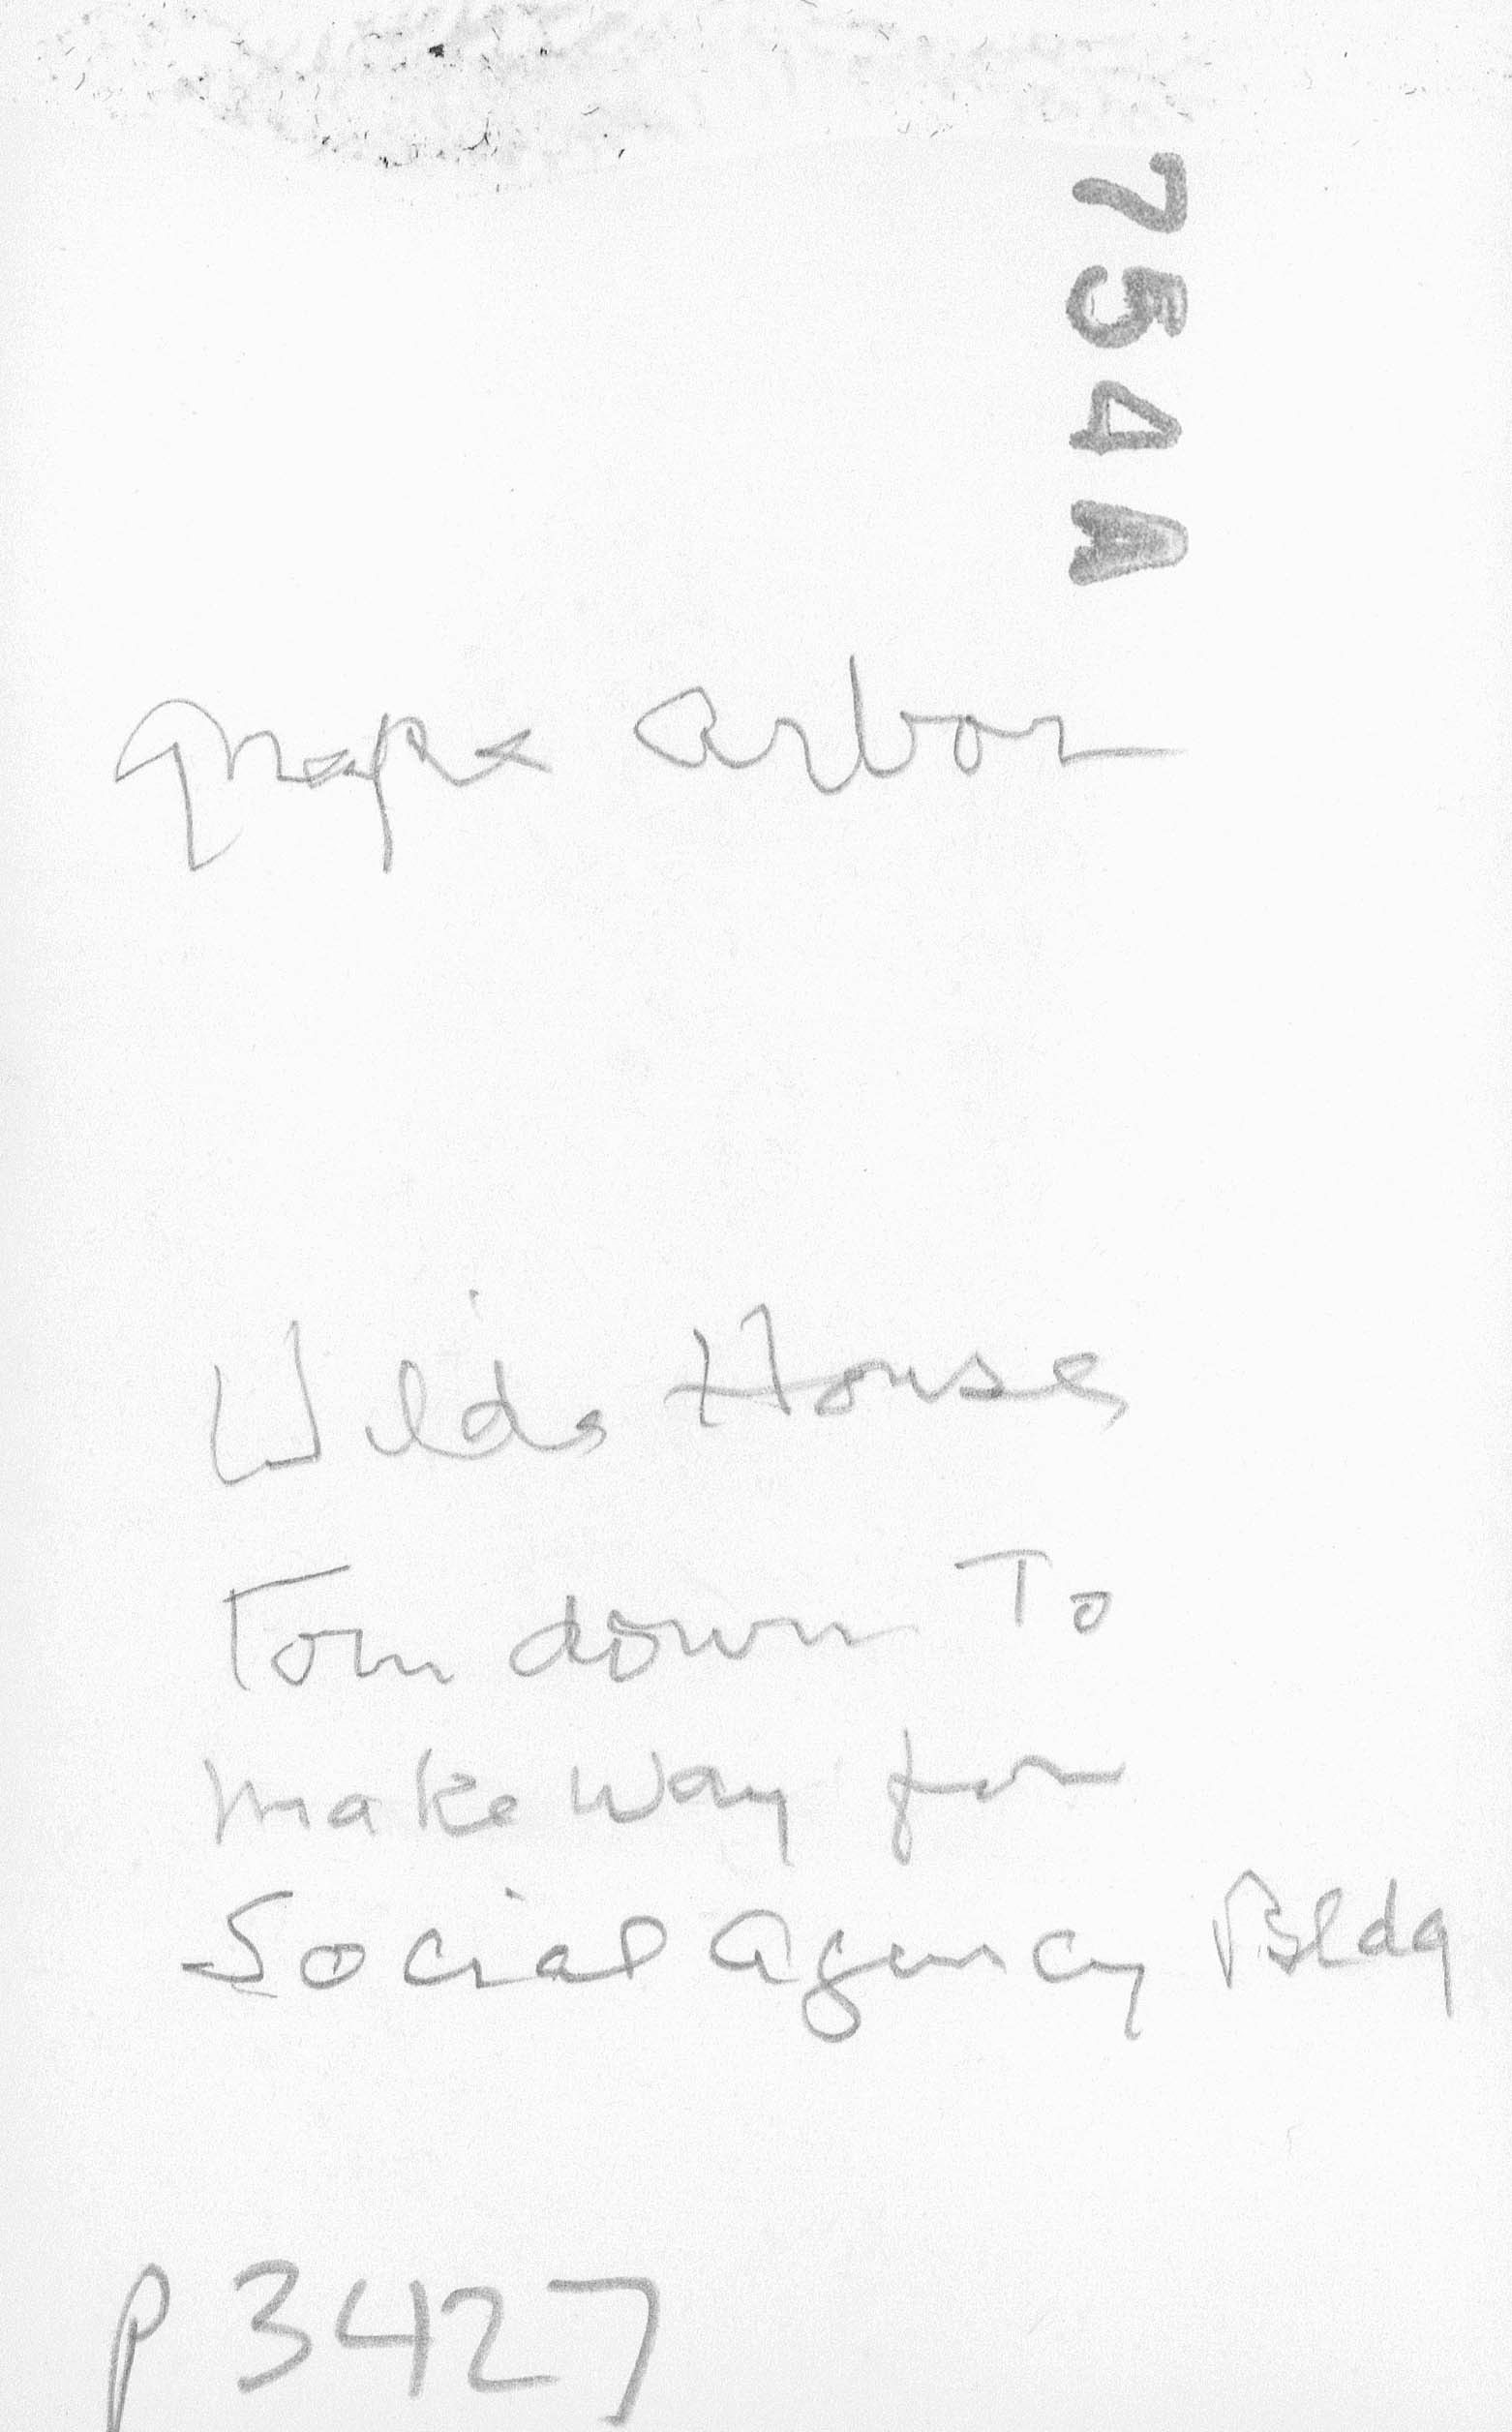 754A
grape arbor
Wilds House
Torn down To
make way for
Social Agency Bldg
P3427